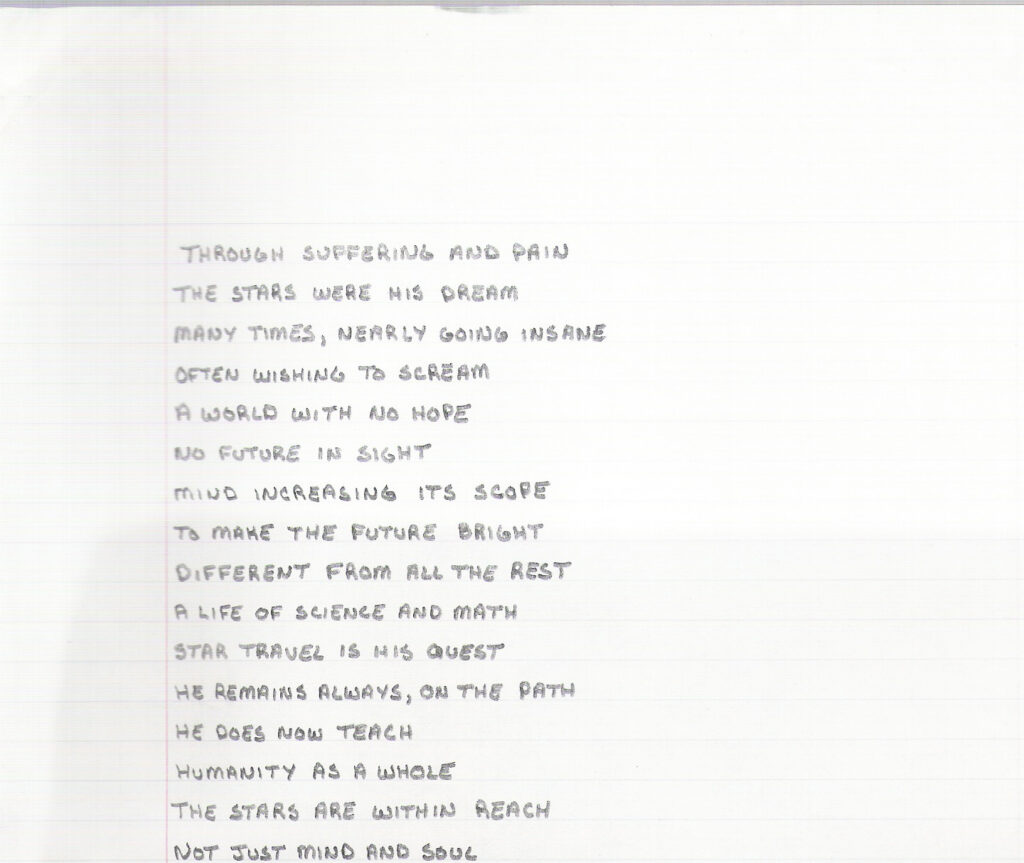 THROUGH SUFFERING AND PAIN
THE STARS WERE HIS DREAM
MANY TIMES, NEARLY GOING INSANE
OFTEN WISHING TO SCREAM
A WORLD WITH NO HOPE
NO FUTURE IN SIGHT
MIND INCREASING ITS SCOPE
TO MAKE THE FUTURE BRIGHT
DIFFERENT FROM ALL THE REST
A LIFE OF SCIENCE AND MATH
STAR TRAVEL IS HIS QUEST
HE REMAINS ALWAYS, ON THE PATH
HE DOES NOW TEACH
HUMANITY AS A WHOLE
THE STARS ARE WITHIN REACH
NOT JUST MIND AND SOUL